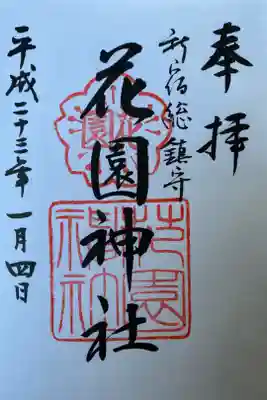 奉拝
新宿総鎮守
花園神社
平成二十三年一月四日
花園
花園神社